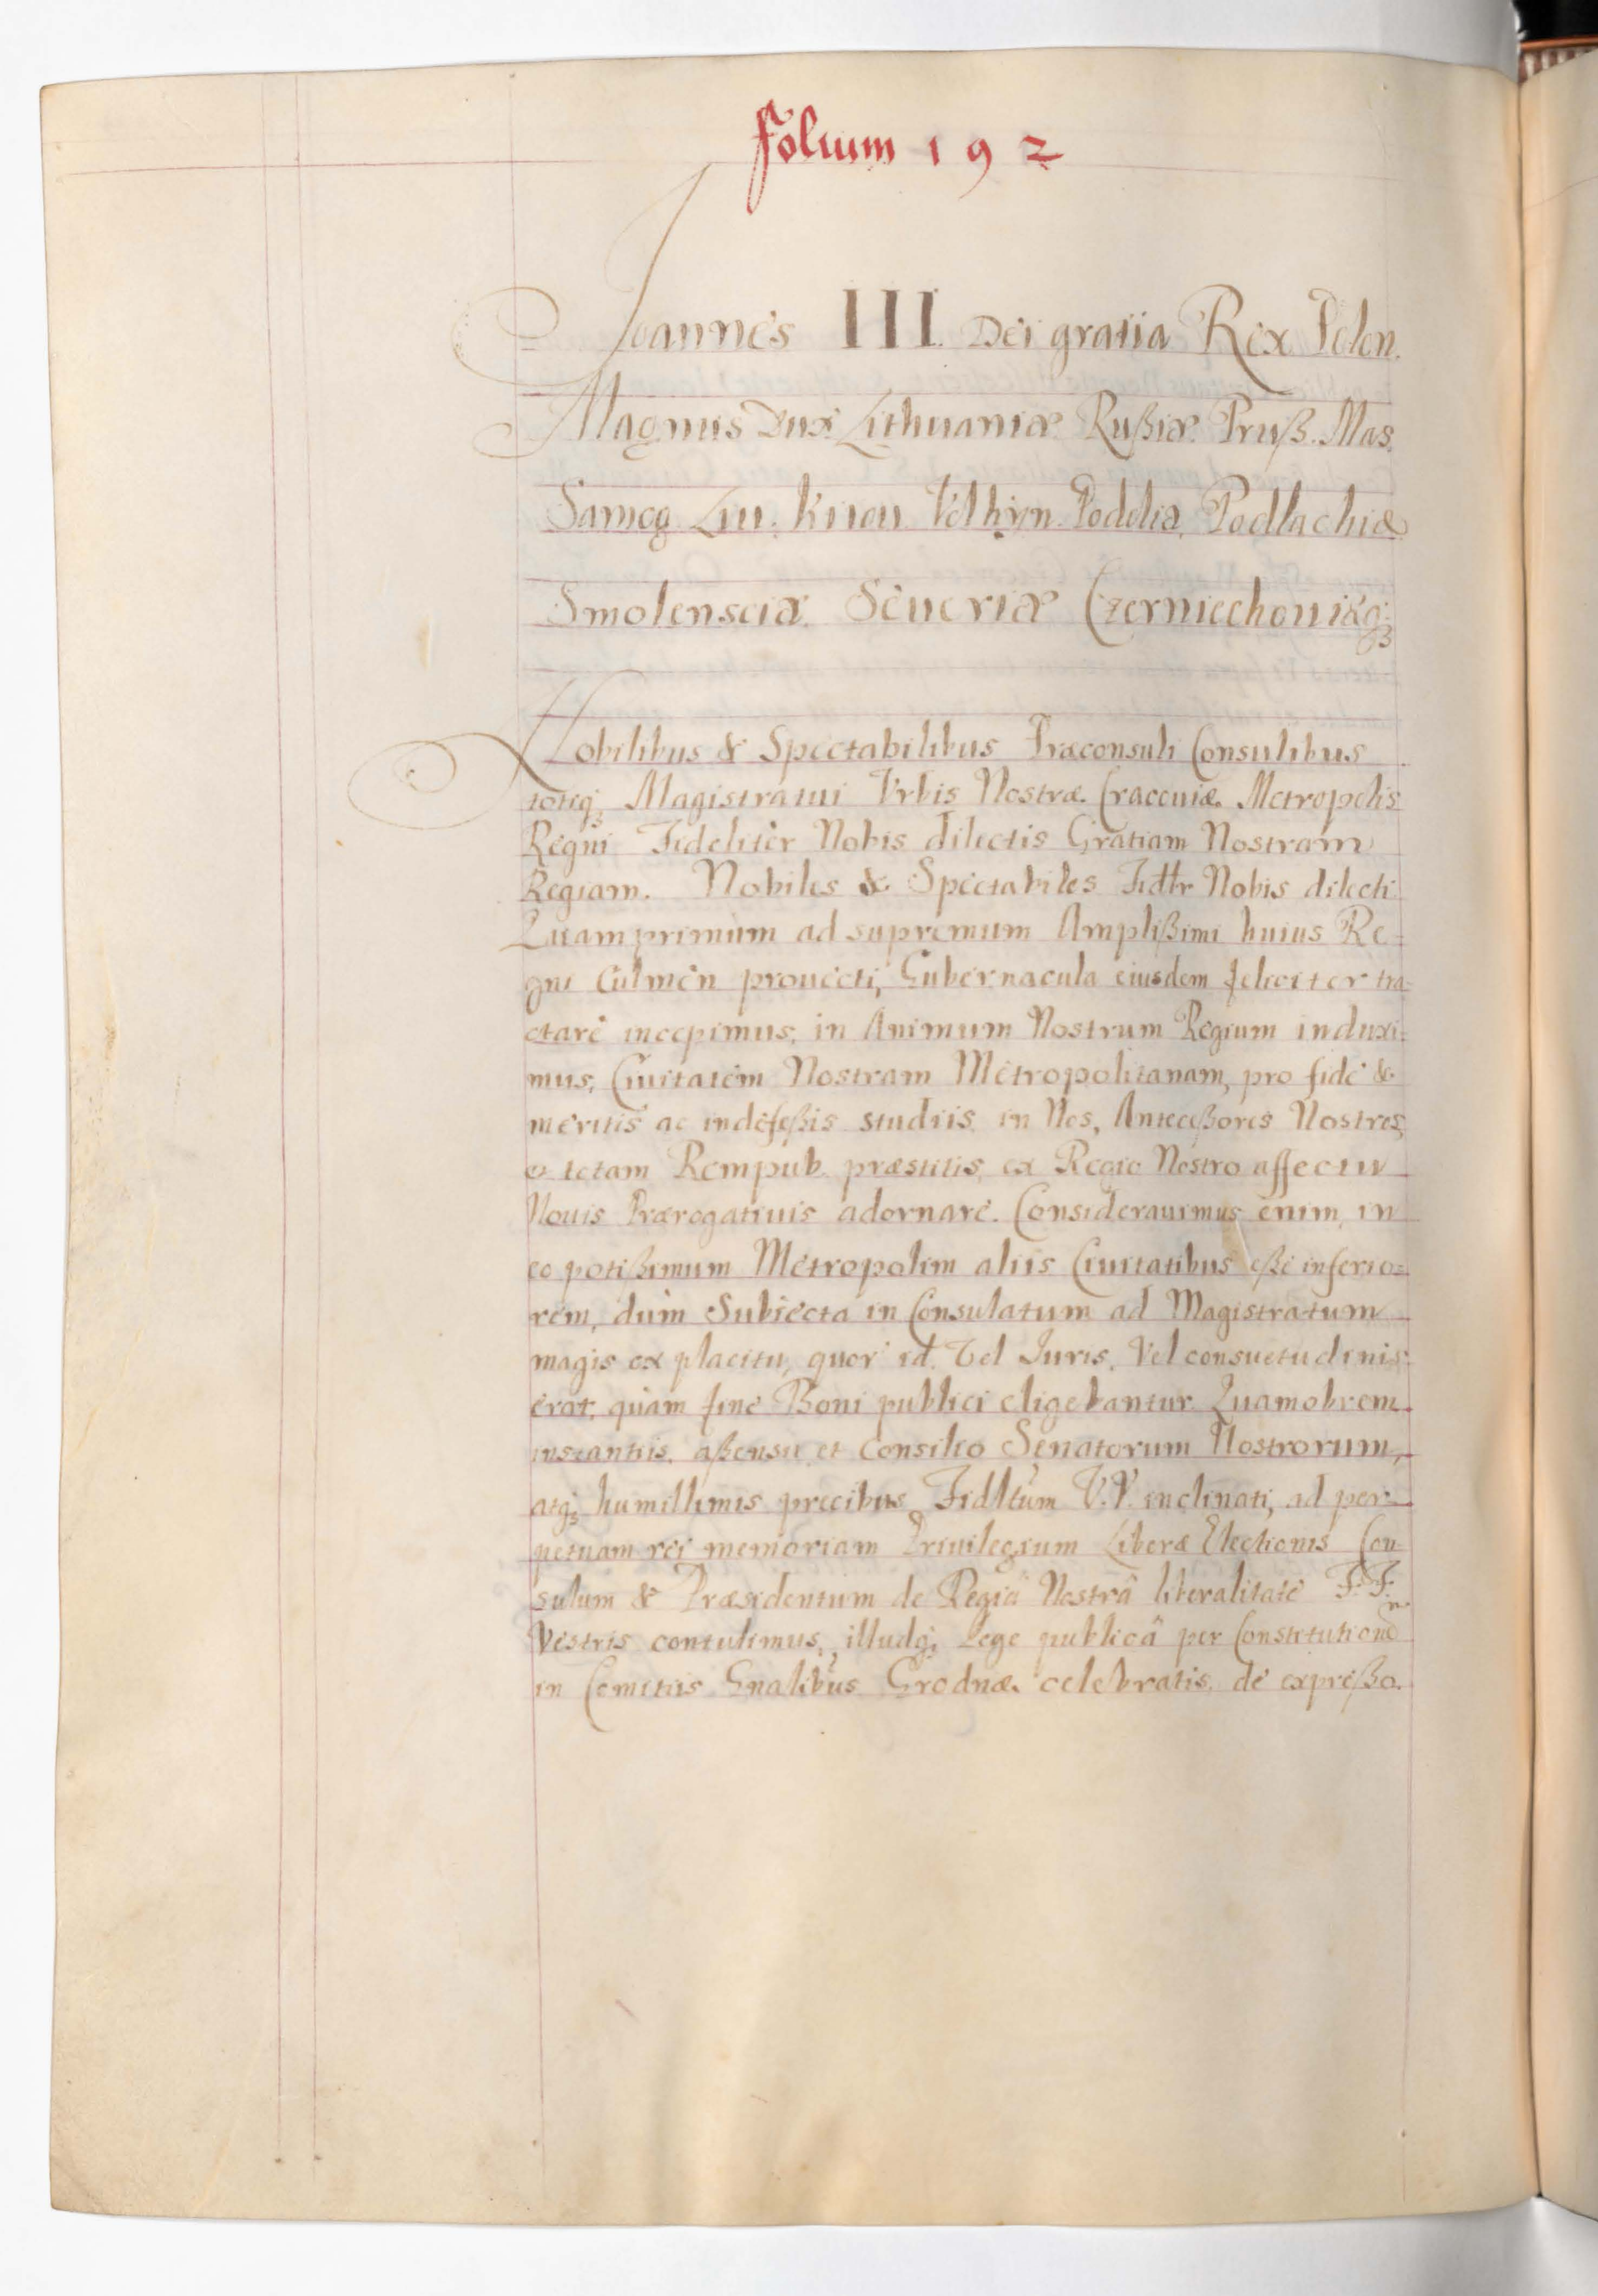 Folium 192
Joannes III. Dei gratia Rex Polon.
Magnus Dux Lithuaniæ Rußiæ Pruß. Mas.
Samog. Liu. Kiiou. Volhyn. Podoliæ, Podlachiæ
Smolensciæ Seueriæ Czerniechouiæq;
Nobilibus & Spectabilibus Præconsuli Consulibus
totiq; Magistratui Vrbis Nostræ Cracouiæ Metropolis
Regni Fideliter Nobis dilectis Gratiam Nostram
Regiam. Nobiles & Spectabiles Fidtr Nobis dilecti
Quamprimum ad supremum Amplißimi huius Re=
gni Culmen prouecti, Gubernacula eiusdem feliciter tra=
ctare incepimus, in Animum Nostrum Regium induxi=
mus, Ciuitatem Nostram Metropolitanam, pro fide &
meritis ac indefeßis studiis in Nos, Anteceßores Nostros,
et totam Rempub. præstitis, ex Regio Nostro affectu
Nouis Prærogatiuis adornare. Considerauimus enim, in
eo potißimum Metropolim aliis Ciuitatibus eße inferio=
rem, dum Subiecta in Consulatum ad Magistratum
magis ex placitu, quor id. Vel Juris, Vel consuetudinis
erat, quam fine Boni publici eligebantur Quamobrem
instantiis, aßensu et Consilio Senatorum Nostrorum,
atq; humillimis precibus Fidltum V.V. inclinati, ad per=
petuam rei memoriam Priuilegium Liberæ Electionis Con
sulum & Præsidentum de Regiâ Nostrâ liberalitate F. F.
Vestris contulimus, illudq; Lege publicâ per Constitutionē
in Comitiis Gnalibus Grodnæ celebratis, de expreßo.